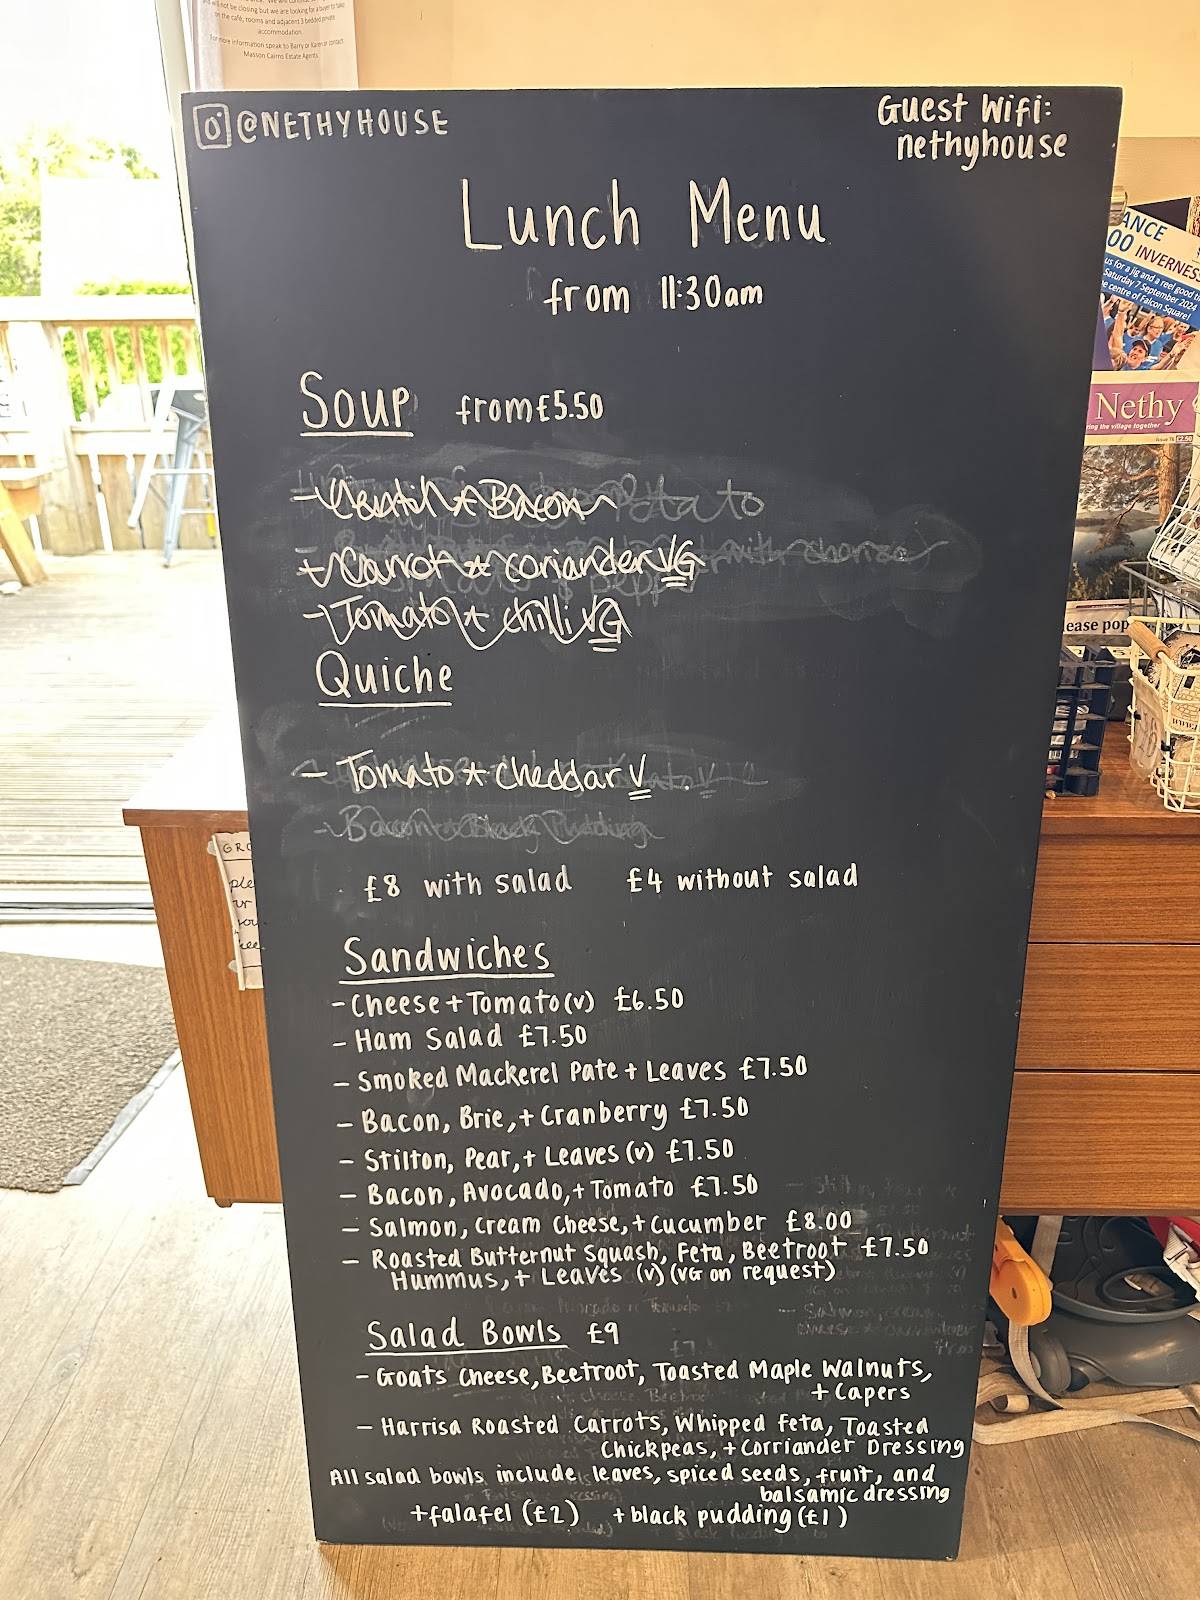 not be closing but we are looking for a buyer to take
on the café, rooms and adjacent 3 bedded private
accommodation.
For more information speak to Barry or Karen or contact
Masson Cairns Estate Agents
@NETHYHOUSE
Guest Wifi:
nethyhouse
Lunch Menu
from 11:30am
Soup from £5.50
- Lentil + Bacon
- Carrot + coriander VG
- Tomato + chilli VG
Quiche
- Tomato + cheddar V
- Bacon + Black Pudding
£8 with salad £4 without salad
Sandwiches
- Cheese + Tomato (v) £6.50
- Ham Salad £7.50
- Smoked Mackerel Pate + Leaves £7.50
- Bacon, Brie, + Cranberry £7.50
- Stilton, Pear, + Leaves (v) £7.50
- Bacon, Avocado, + Tomato £7.50
- Salmon, Cream Cheese, + Cucumber £8.00
- Roasted Butternut Squash, Feta, Beetroot £7.50
Hummus, + Leaves (v) (VG on request)
Salad Bowls £9
- Goats Cheese, Beetroot, Toasted Maple Walnuts,
+ Capers
- Harrisa Roasted Carrots, Whipped Feta, Toasted
Chickpeas, + Corriander Dressing
All salad bowls include leaves, spiced seeds, fruit, and
balsamic dressing
+ falafel (£2) + black pudding (£1)
ANCE
00 INVERNESS
us for a jig and a reel good
Saturday 7 September 2024
e centre of Falcon Square!
Nethy
ring the village together
ease pop